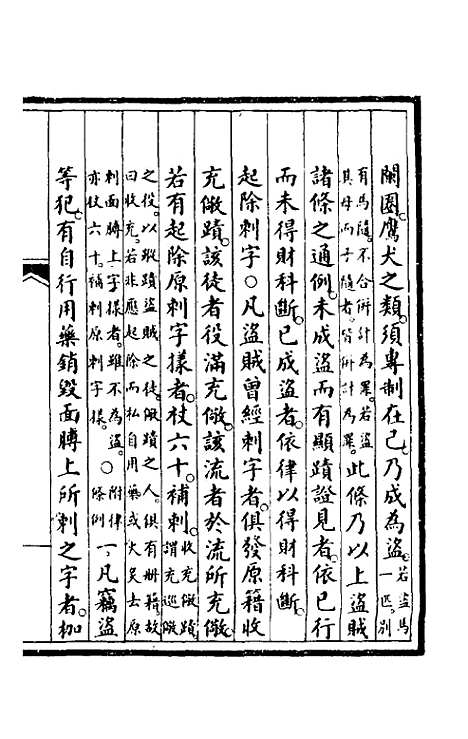 闌圈鷹犬之類須專制在己乃成為盜若盜馬一匹別
有馬隨不合併計為罪若盜其母而子隨者皆併計為罪此條乃以上盜賊
諸條之通例未成盜而有顯蹟證見者依已行
而未得財科斷已成盜者依律以得財科斷
起除刺字○凡盜賊曾經刺字者俱發原籍收
充儆蹟該徒者役滿充儆該流者於流所充儆
若有起除原刺字樣者杖六十補刺收充儆蹟謂充巡儆
之役以蹤蹟盜賊之徒儆蹟之人俱有冊籍故曰收充若非應起除而私自用藥或火灸去原
刺面膊上字樣者雖不為盜亦杖六十補刺原刺字樣○附律條例一凡竊盜
等犯有自行用藥銷毀面膊上所刺之字者枷